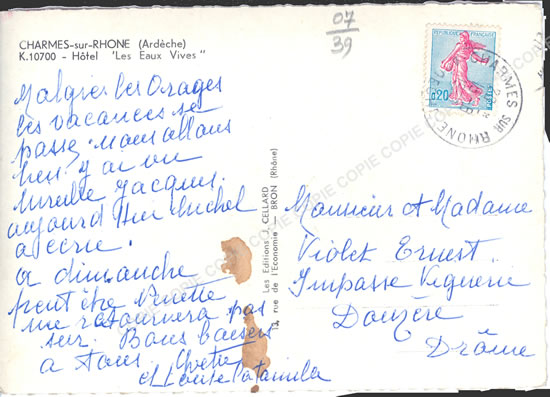 07
39
CHARMES-sur-RHONE (Ardèche)
K.10700 - Hôtel "Les Eaux Vives"
REPUBLIQUE FRANÇAISE
0,20
POSTES
CHARMES SUR RHONE
Malgrer les Orages
les vacances se
passe. nous allons
bien j'ai vu
Mireille Jacques.
aujourd hui Michel
a ecrie.
a dimanche
peut être Ginette
me retournera pas
sur. Bons baisers
a tous.
et Louise
Les Editions J. CELLARD
12, rue de l'Economie - BRON (Rhône)
Monsieur et Madame
Violet Ernest
Impasse Viguerie
Donzère
Drôme
COPIE COPIE COPIE COPIE COPIE